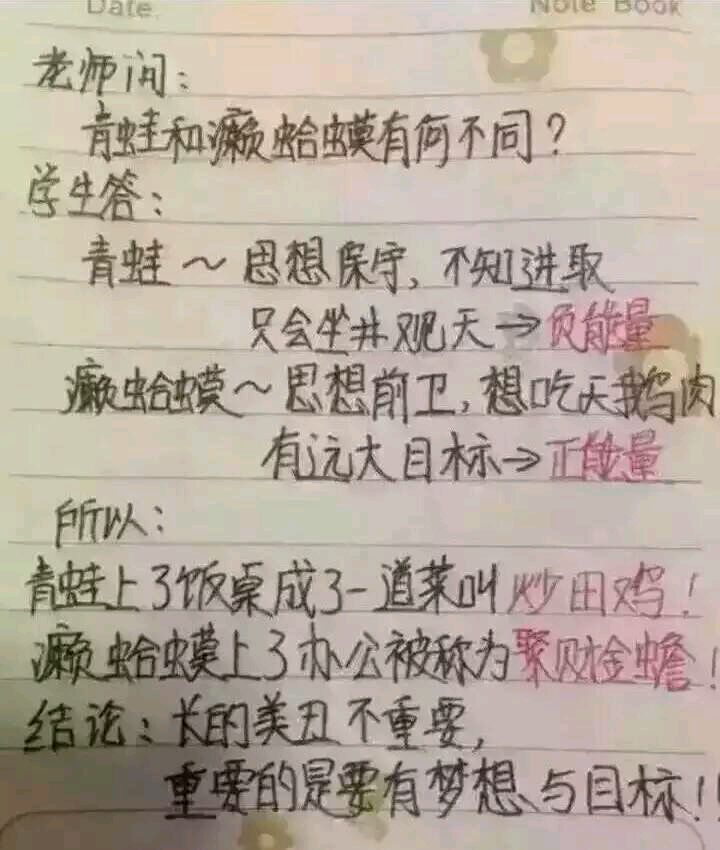 Date
Note Book
老师问:
青蛙和癞蛤蟆有何不同?
学生答:
青蛙~思想保守,不知进取
只会坐井观天→负能量
癞蛤蟆~思想前卫,想吃天鹅肉
有远大目标→正能量
所以:
青蛙上了饭桌成了一道菜叫炒田鸡!
癞蛤蟆上了办公被称为聚财金蟾!
结论:长的美丑不重要,
重要的是要有梦想与目标!!